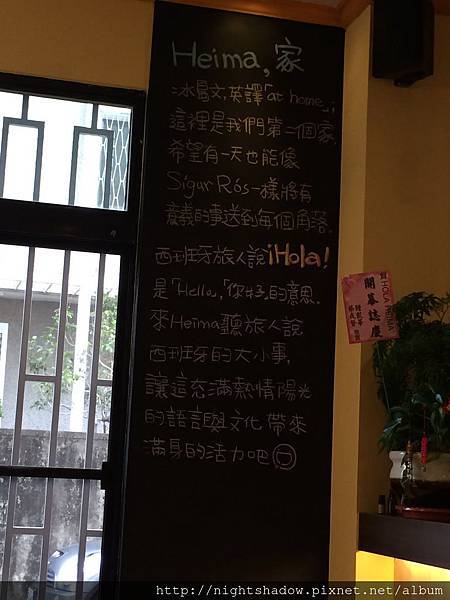 Heima, 家
:冰島文,英譯「at home」;
這裡是我們第二個家,
希望有一天也能像
Sigur Rós一樣將有
意義的事送到每個角落.
西班牙旅人說¡Hola!
是「Hello」,「你好」的意思.
來Heima聽旅人說
西班牙的大小事,
讓這充滿熱情陽光
的語言與文化帶來
滿身的活力吧
賀 HOLA HEIMA
開幕誌慶
http://nightshadow.pixnet.net/album